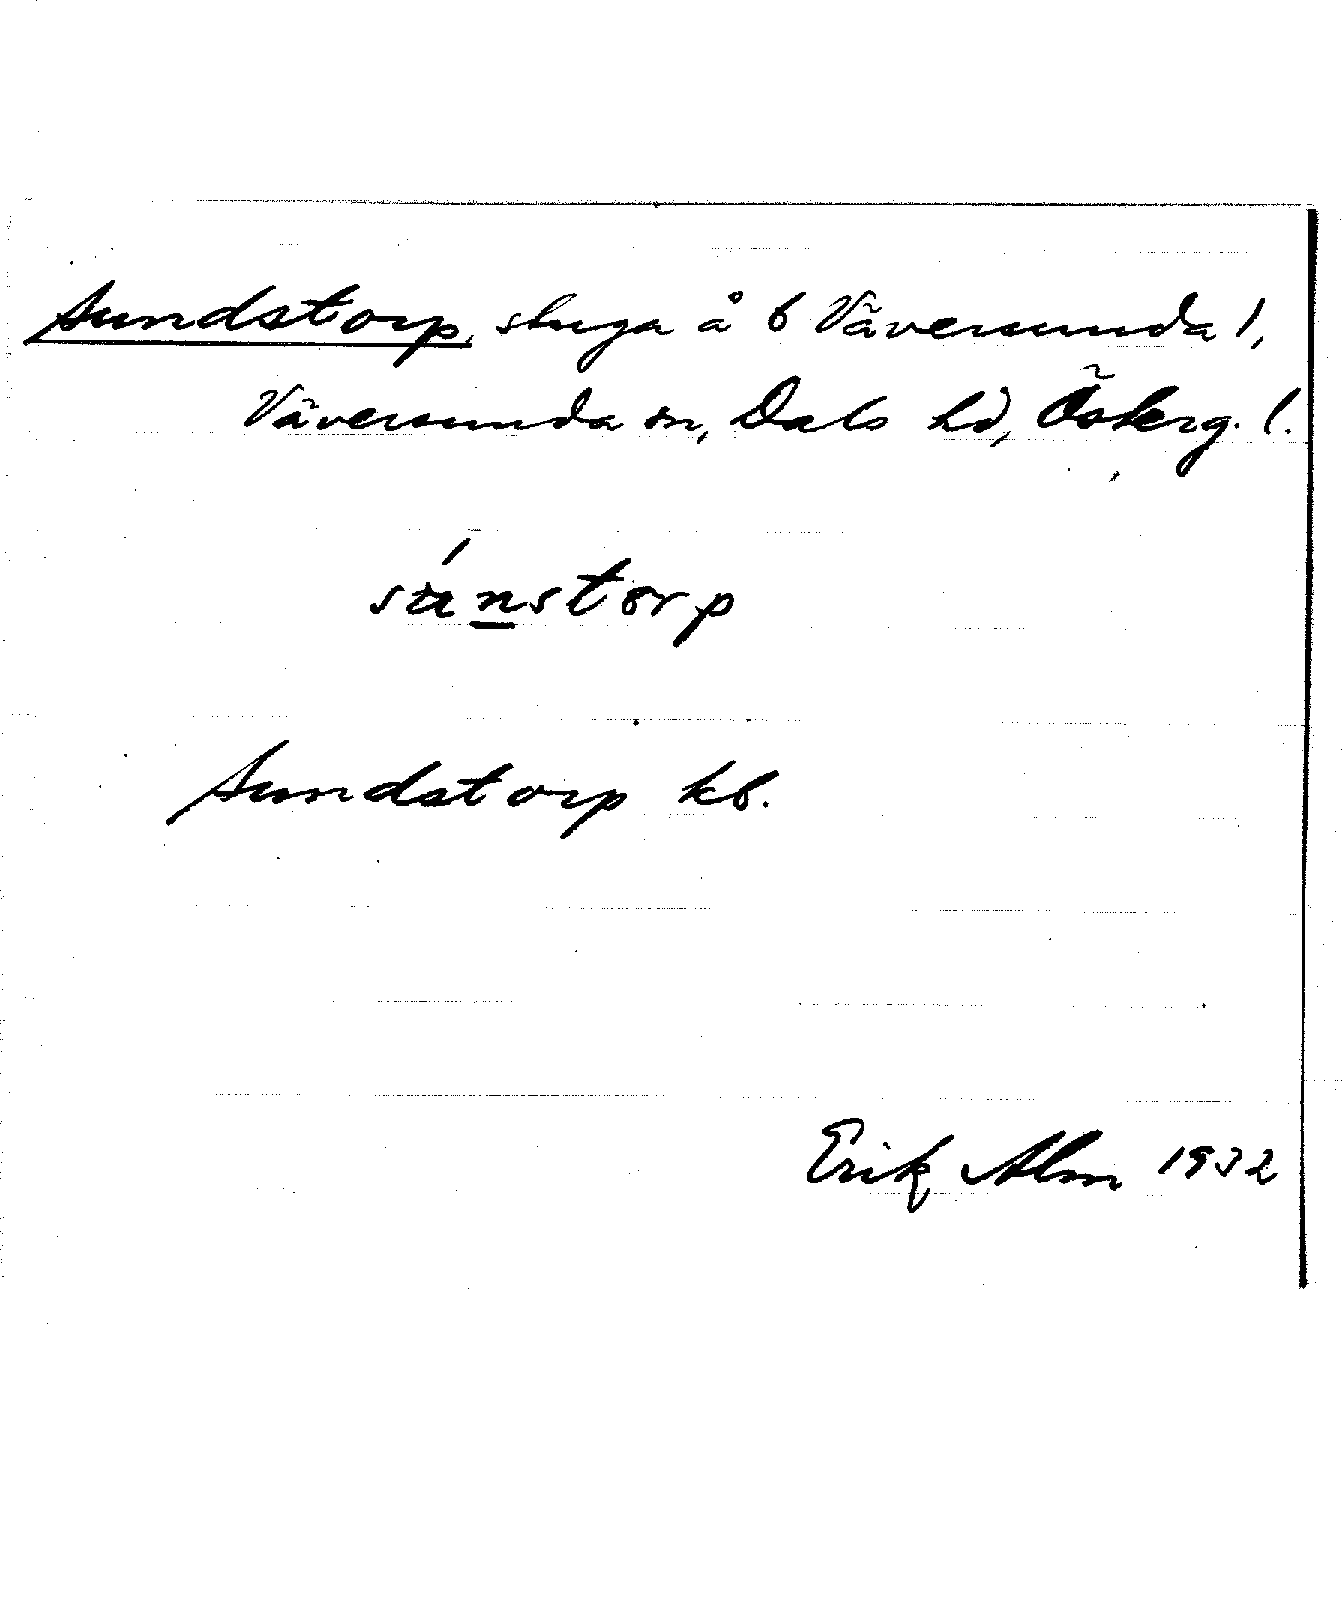 Sundstorp, stuga å 6 Väversunda 1,
Väversunda sn, Dals hd, Österg. l.
sú̵nstorp
Sundstorp kb.
Erik Alm 1932